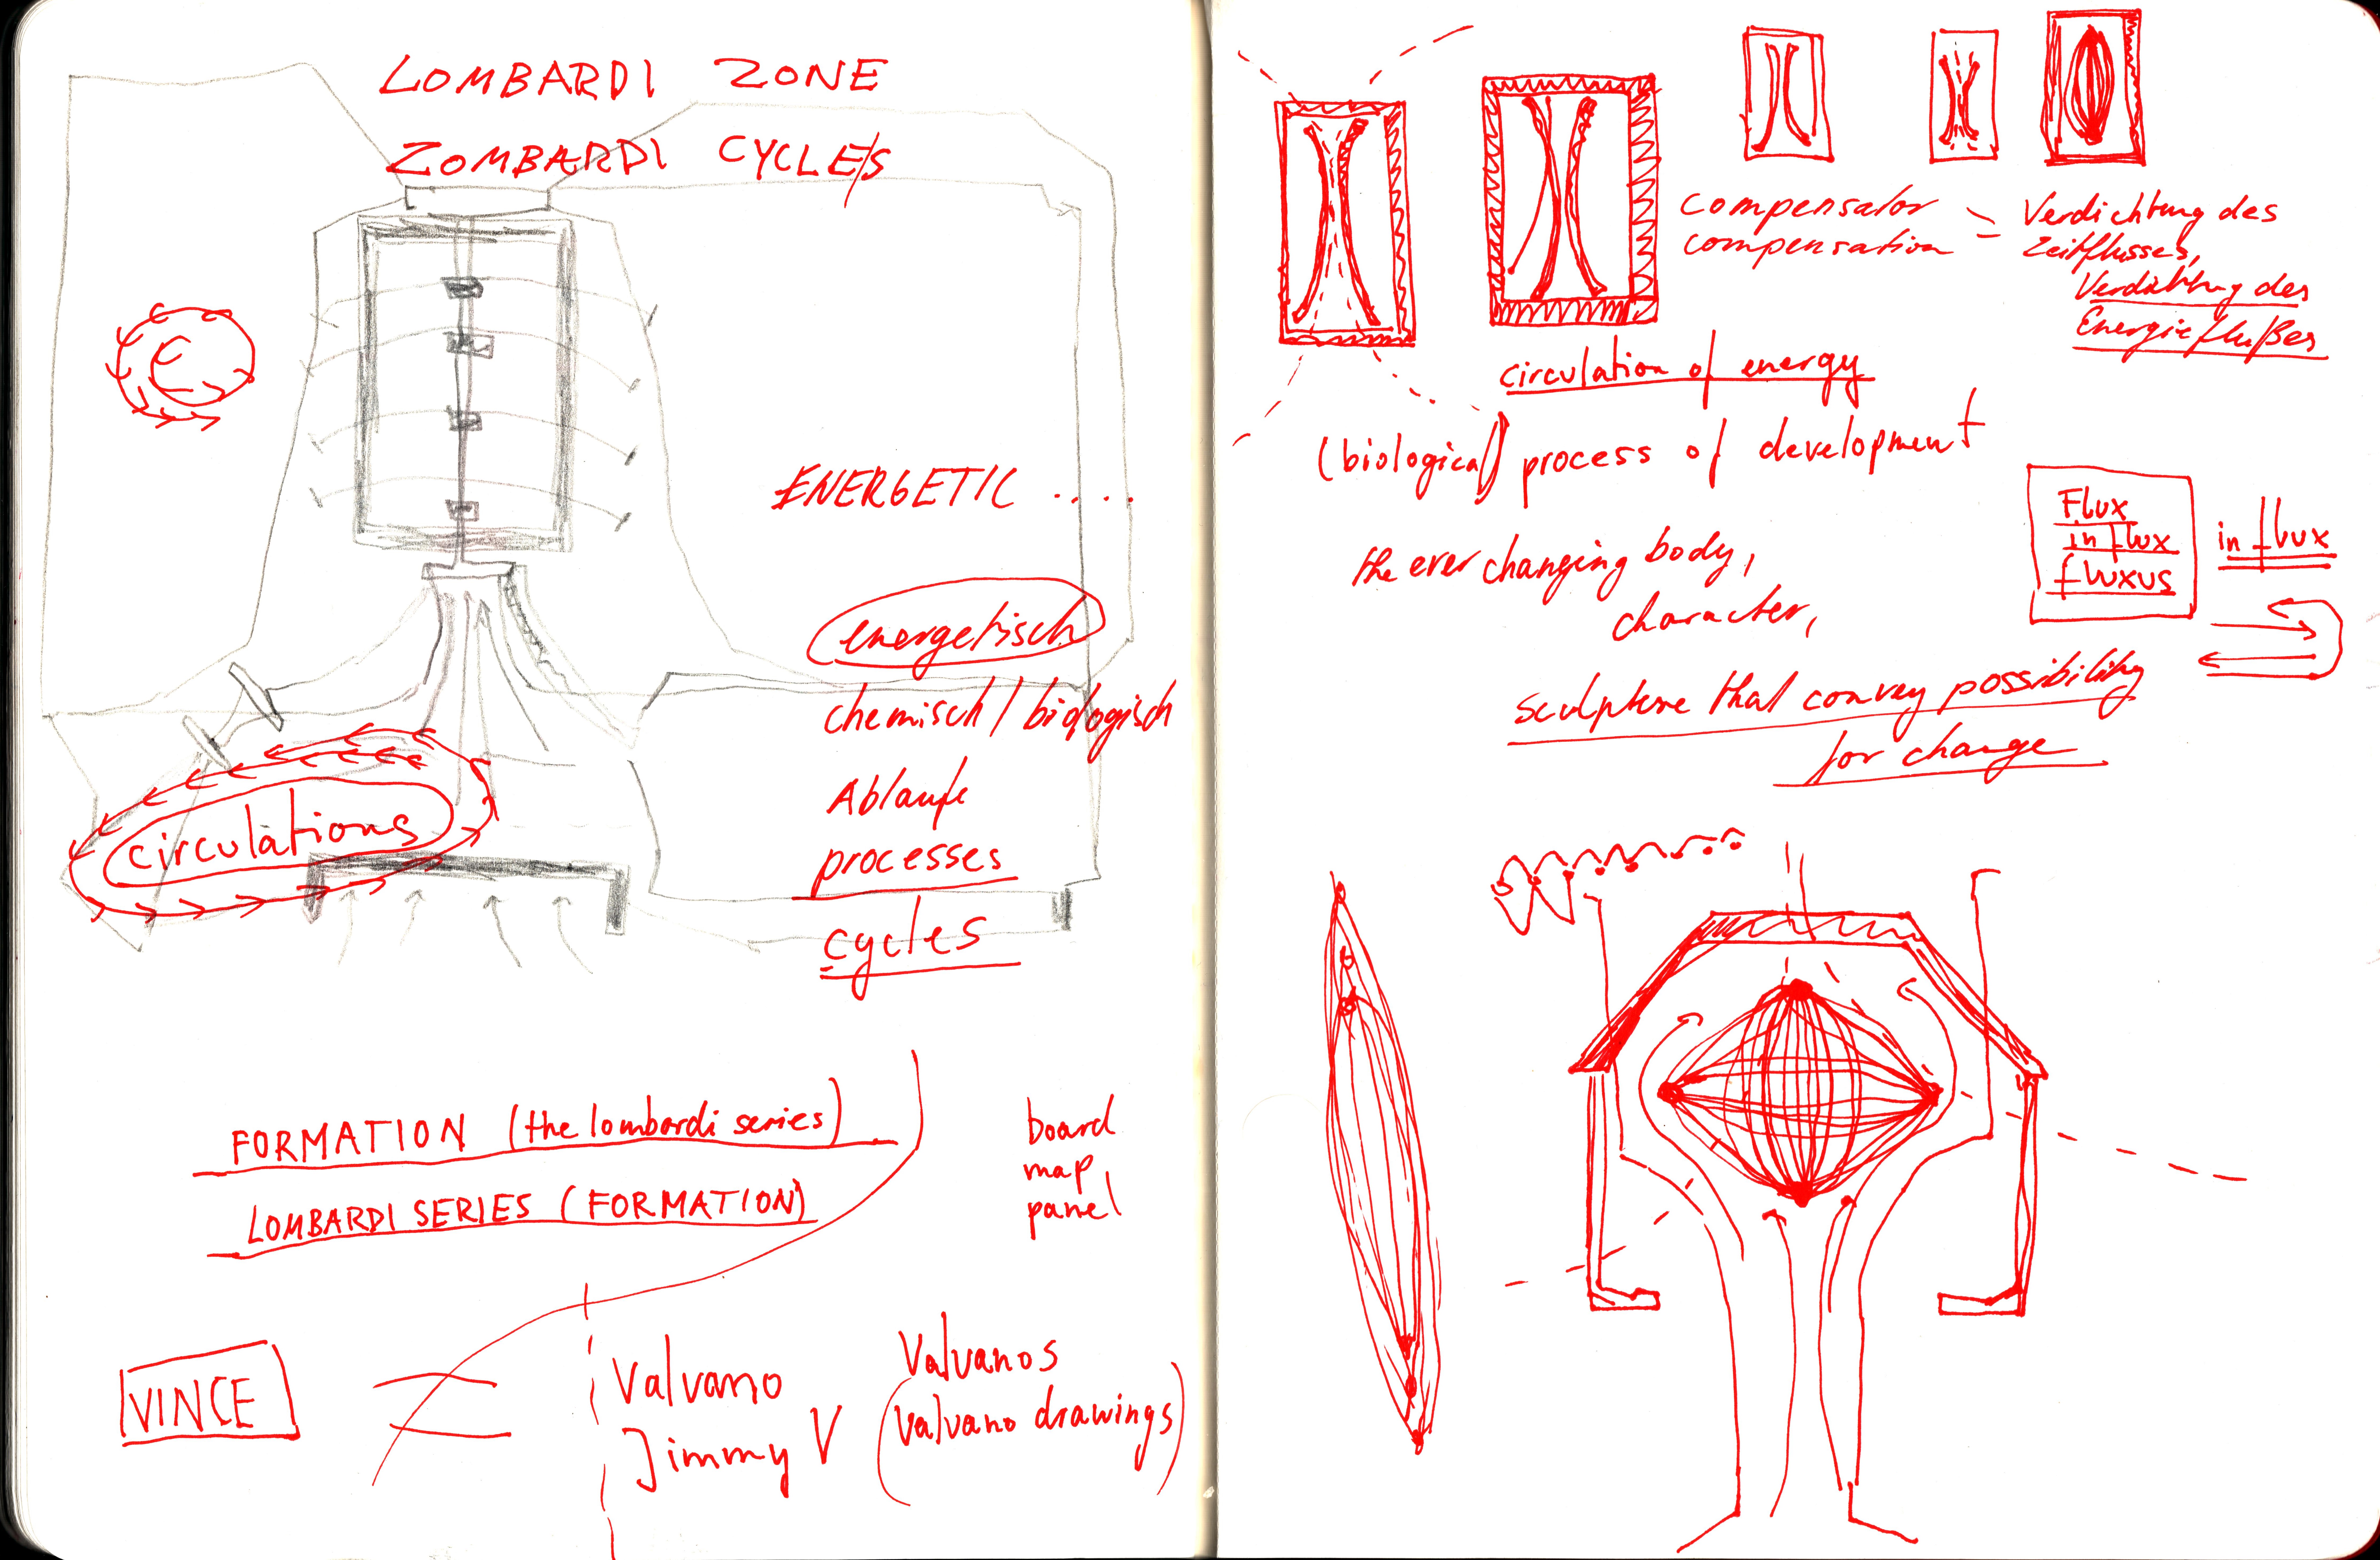 LOMBARDI ZONE
ZOMBARDI CYCLE/S
ENERGETIC .....
energetisch
chemisch / biologisch
Abläufe
processes
cycles
circulations
FORMATION (the lombardi series)
LOMBARDI SERIES (FORMATION)
board
map
panel
VINCE
Valvano
Jimmy V
Valvanos
(Valvano drawings)
compensator
compensation
=
Verdichtung des
Zeitflusses,
Verdichtung des
Energieflußes
circulation of energy
(biological) process of development
the ever changing body,
character,
sculpture that convey possibility
for change
Flux
in flux
fluxus
in flux